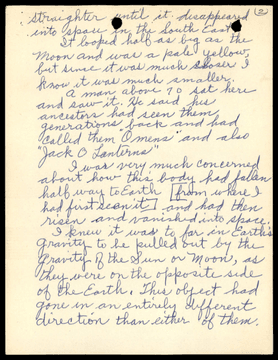 2
straighter until it disappeared
into space in the South East.
It looped half as big as the
Moon and was a pale yellow,
but since it was much closer I
know it was much smaller.
A man above 70 sat here
and saw it. He said his
ancestors had seen them,
generations back and had
called them Omens and also
"Jack O Lanterns"
I was very much concerned
about how this body had fallen
half way to Earth from where I
had first seen it and had then
risen and vanished into space.
I knew it was to far in Earth's
Gravity to be pulled out by the
Gravity of the Sun or Moon, as
they were on the opposite side
of the Earth. This object had
gone in an entirely different
direction than either of them.